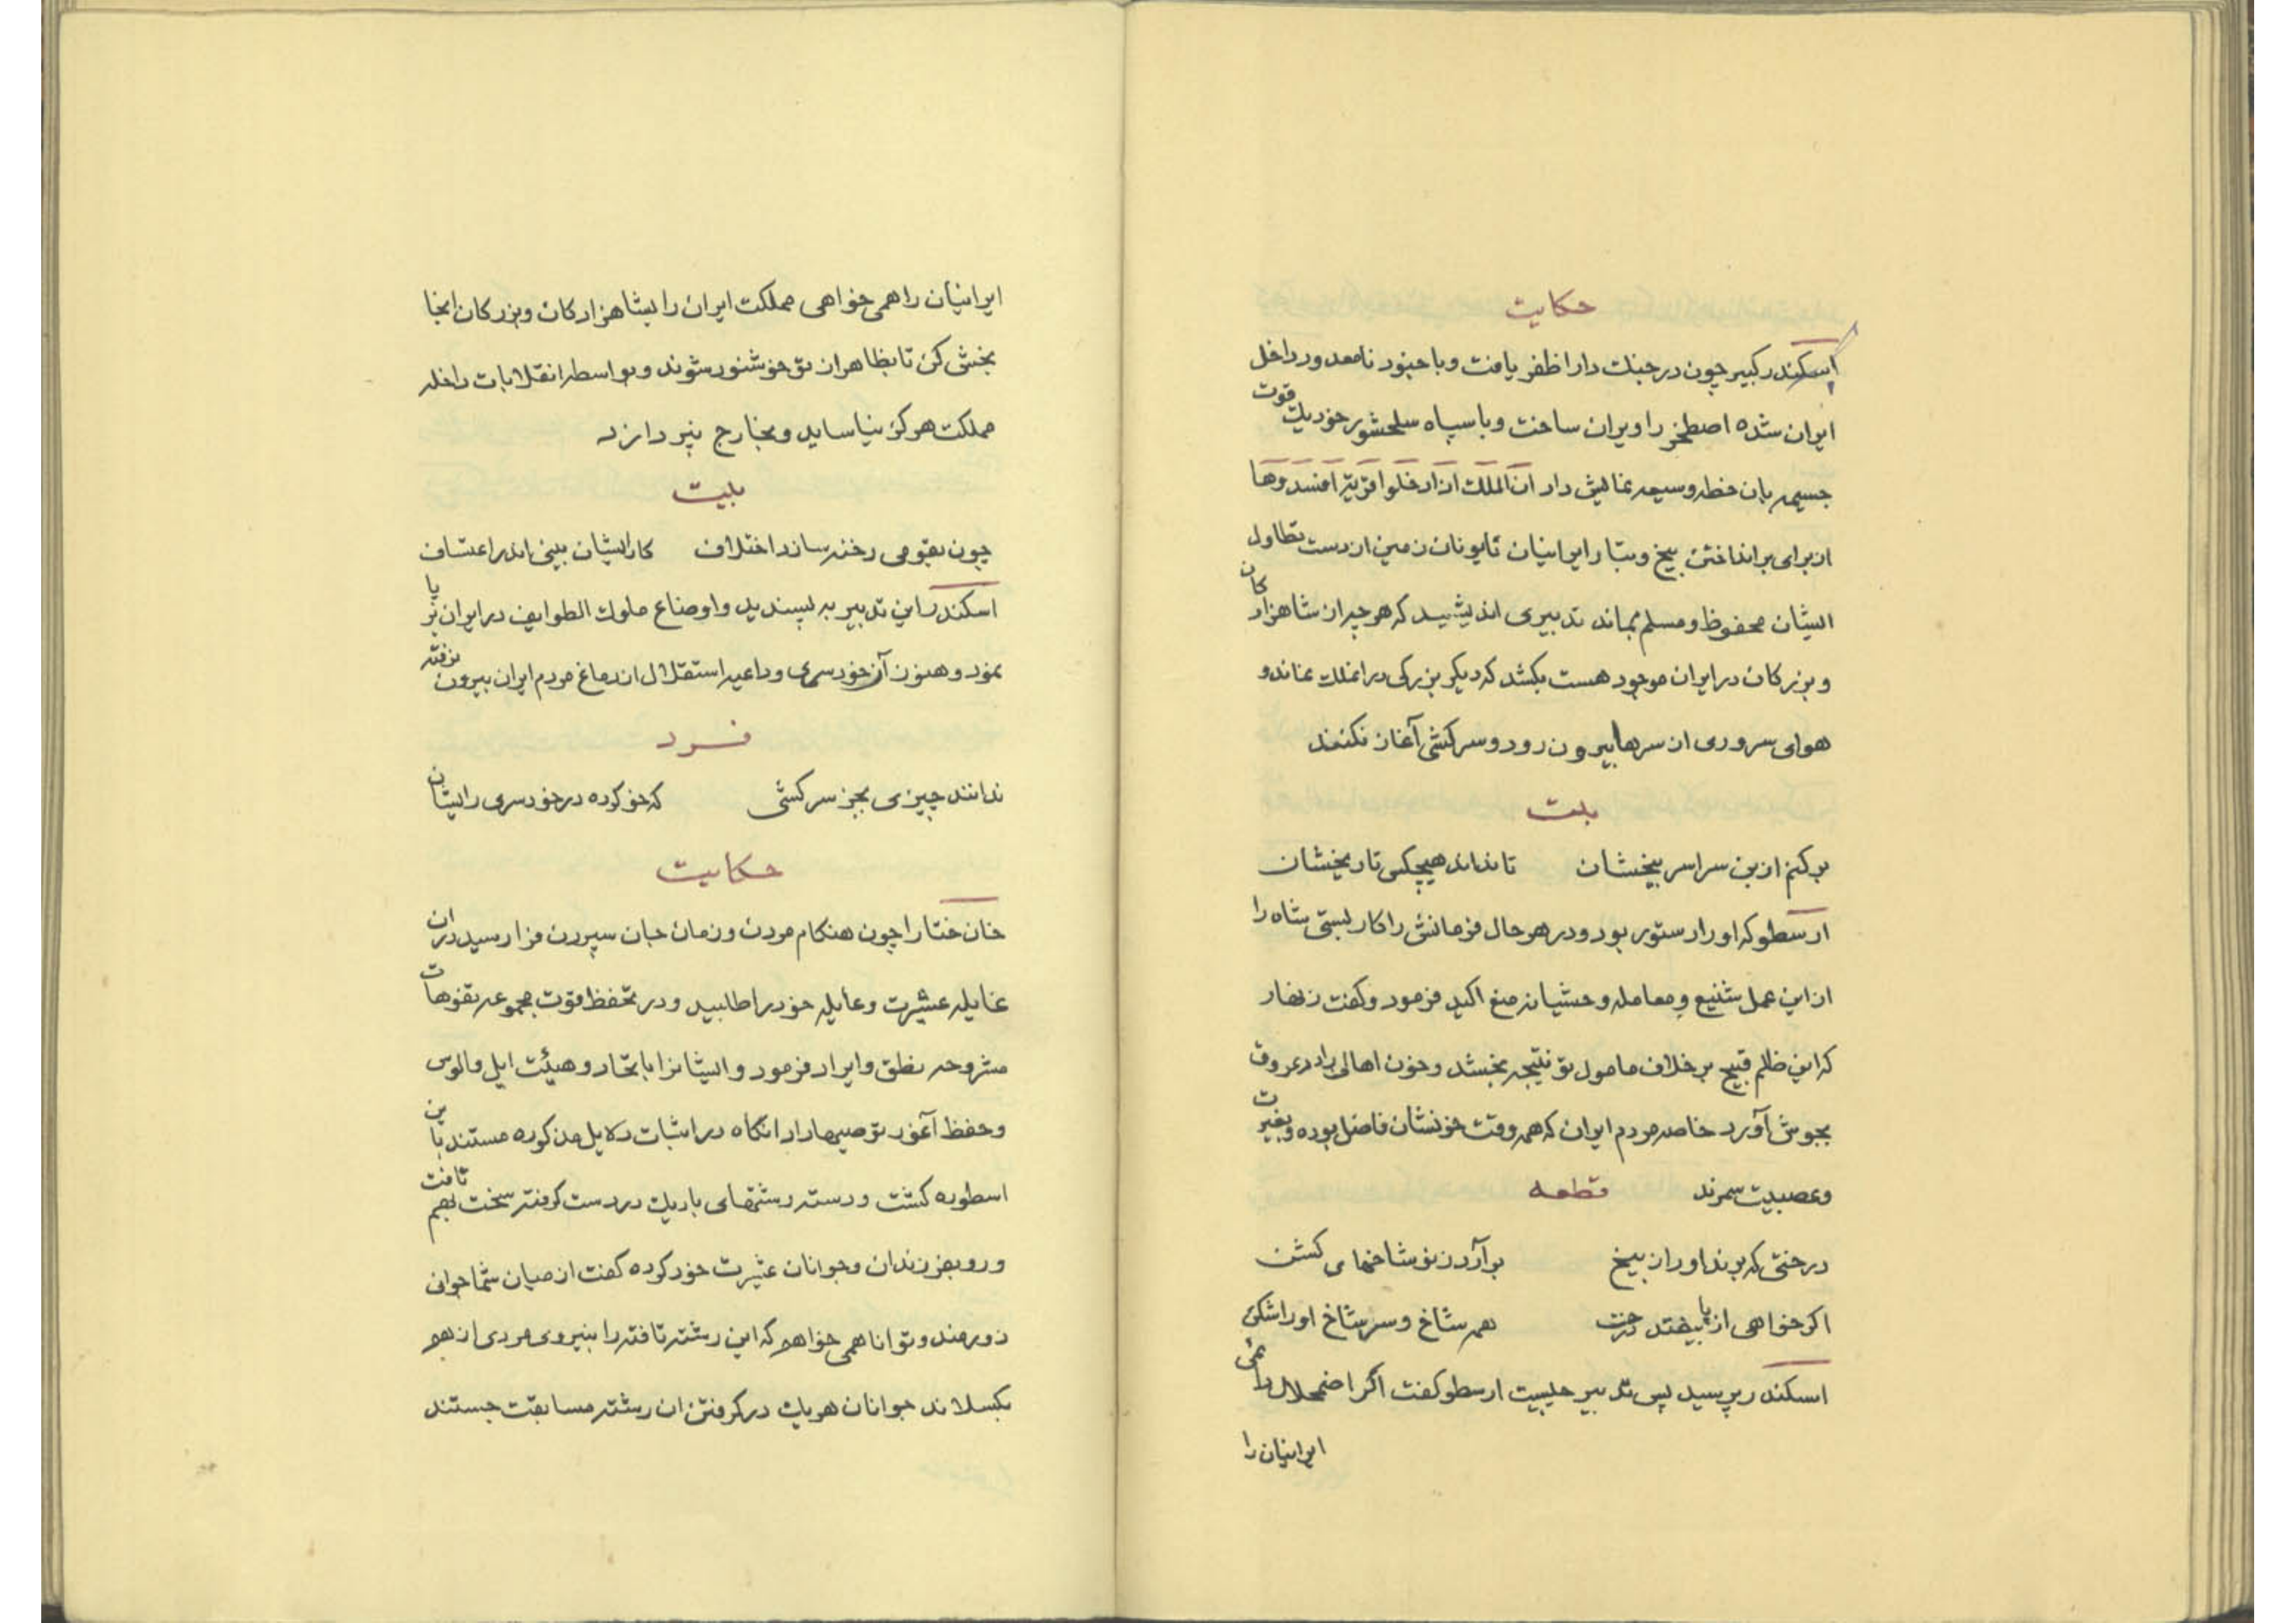 حکایت
اسکندر کبیر چون در جنک دارا ظفر یافت و با جنود نامعدود داخل
ایران شده اصطخر را ویران ساخت و با سپاه سلحشور خود یک قوت
جسیمه بان خطه وسیعه نمایش داد ان الملک اذا دخلوا قریة افسدوها
از برای برانداختن بیخ و بتار ایرانیان تا یونان زمین از دست تطاول
ایشان محفوظ و مسلم بماند تدبیری اندیشید که هر چه از شاهزادکان
و بزرکان در ایران موجود هست بکشد که دیکر بزرکی در انملک نماند و
هوای سروری از سرها بیرون رود و سرکشی آغاز نکنند
بیت
برکنم از بن سراسر بیخشان    تا نداند هیچکس تاریخشان
ارسطو که او را دستور بود و در هر حال فرمانش را کار بستی شاه را
از این عمل شنیع و معامله وحشیانه منع اکید فرمود و کفت زنهار
که این ظلم قبیح بر خلاف مامول تو نتیجه بخشد و خون اهالی را در عروق
بجوش آورد خاصه مردم ایران که همه وقت خونشان فاضل بوده و بغیرت
و عصبیت سمرند    قطعه
درختی که برند او را از بیخ    برآرد ز نو شاخهای کشن
اکر خواهی از پا بیفتد درخت    همه شاخ و سرشاخ او را شکن
اسکندر پرسید پس تدبیر چیست ارسطو کفت اکر اضمحلال دائمی
ایرانیان را
ایرانیان را همی خواهی مملکت ایران را بشاهزادکان و بزرکان انجا
بخش کن تا بظاهر از تو خوشنود شوند و بواسطه انقلابات داخله
مملکت هرکز نیاساید و بخارج نپردازد
بیت
چون بقومی رخنه سازد اختلاف    کار ایشان بینی اندر اعتساف
اسکندر را این تدبیر به پسندید و اوضاع ملوک الطوایف در ایران برپا
نمود و هنوز آن خودسری و داعیه استقلال از دماغ مردم ایران بیرون نرفته
فرد
ندانند چیزی بجز سرکشی    که خو کرده در خودسری رایشان
حکایت
خان ختا را چون هنکام مردن و زمان جان سپردن فرا رسید دران
غایله عشیرت و عایله خود را طلبید و در تحفظ قوت مجموعه تفوهات
مشروحه نطق و ایراد فرمود و ایشانرا باتحاد و هیئت ایل و الوس
و حفظ آغور توصیها داد انکاه در اثبات دلایل مذکوره مستند باین
اسطوره کشت و دسته رشتهای باریک در دست کرفته سخت بهم تافت
و رو بفرزندان و جوانان عشیرت خود کرده کفت از میان شما جوانی
زورمند و توانا همی خواهم که این رشته تافته را بنیروی مردی از هم
بکسلاند جوانان هر یک در کرفتن ان رشته مسابقت جستند